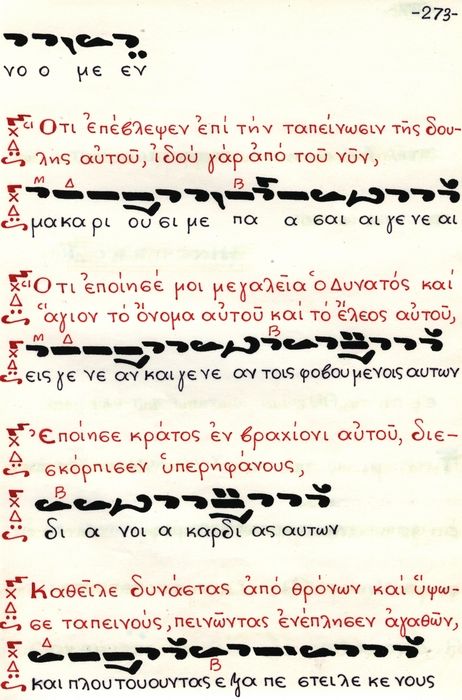 -273-
νο ο με εν
Ὅτι ἐπέβλεψεν ἐπί τήν ταπείνωσιν τῆς δού-
λης αὐτοῦ, ἰδού γάρ ἀπό τοῦ νῦν,
Μ Δ Β
μα κα ρι ου σι με πα α σαι αι γε νε αι
Ὅτι ἐποίησέ μοι μεγαλεῖα ὁ Δυνατός καί
ἅγιον τό ὄνομα αὐτοῦ καί τό ἔλεος αὐτοῦ,
Μ Δ Β
εις γε νε αν και γε νε αν τοις φοβου μενοις αυτων
Ἐποίησε κράτος ἐν βραχίονι αὐτοῦ, διε-
σκόρπισεν ὑπερηφάνους,
Β
δι α νοι α καρδι ας αυτων
Καθεῖλε δυνάστας ἀπό θρόνων καί ὕψω-
σε ταπεινούς, πεινῶντας ἐνέπλησεν ἀγαθῶν,
Δ Β
και πλου του ουντας ε ξα πε στειλε κε νους